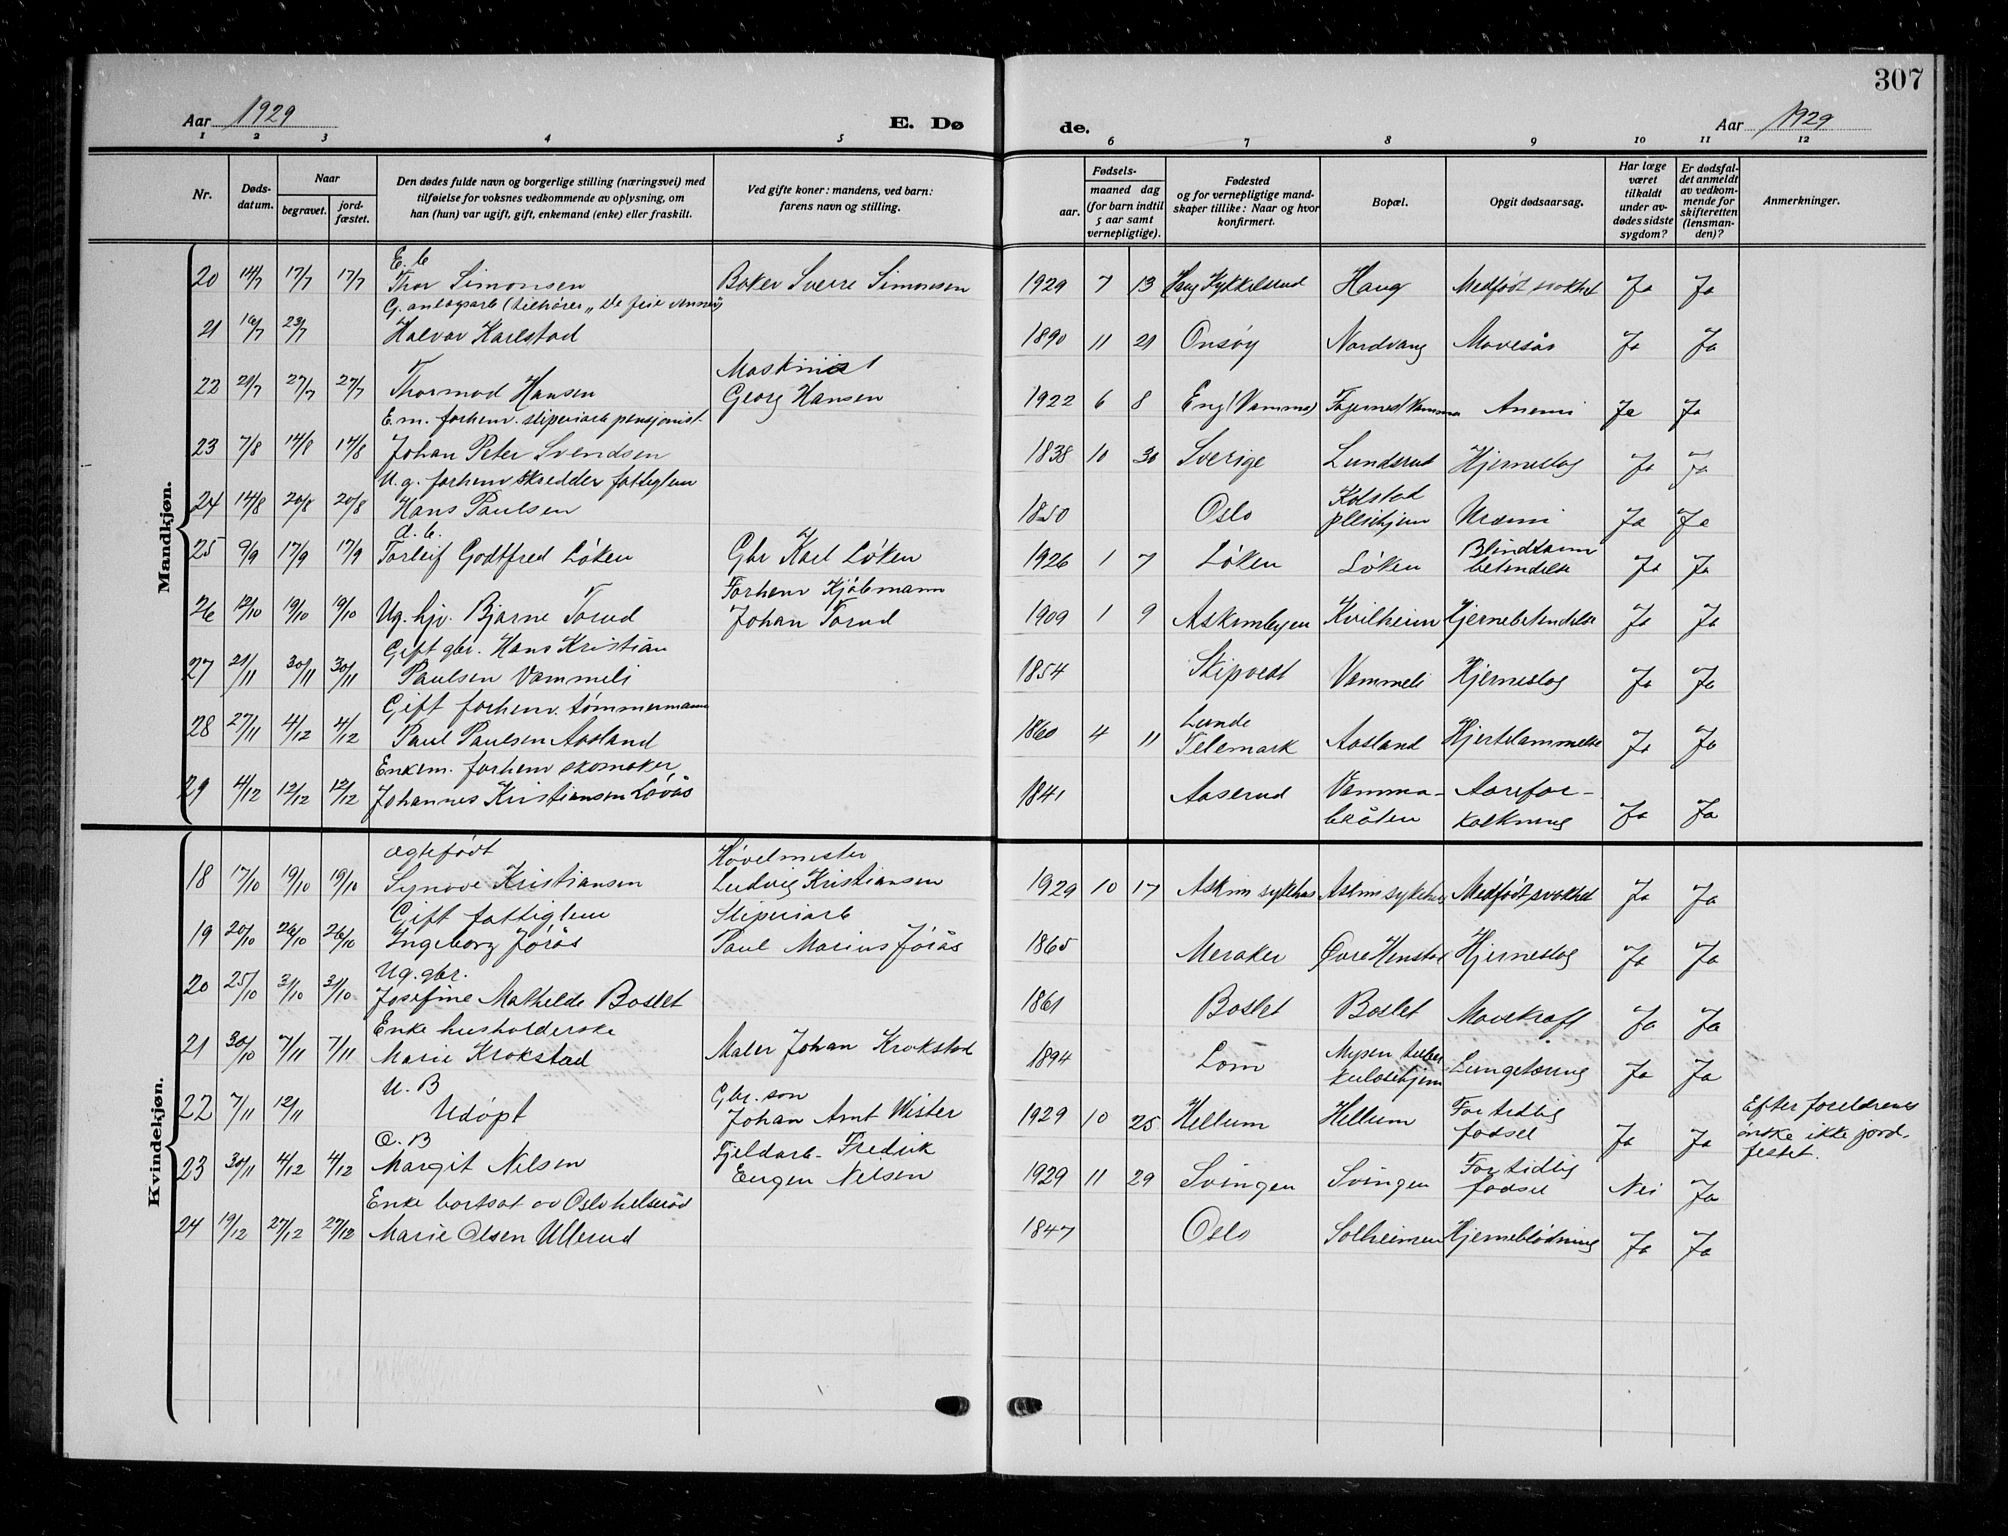 307
Aar 1929 E. Dø de. Aar 1929
1 2 3 4 5 6 7 8 9 10 11 12
Nr. Døds-datum. Naar begravet. jord-fæstet. Den dødes fulde navn og borgerlige stilling (næringsvei) med tilføielse for voksnes vedkommende av oplysning, om han (hun) var ugift, gift, enkemand (enke) eller fraskilt. Ved gifte koner: mandens, ved barn: farens navn og stilling. Fødsels- aar. maaned dag (for barn indtil 5 aar samt vernepligtige). Fødested og for vernepligtige mandskaper tillike: Naar og hvor konfirmert. Bopæl. Opgit dødsaarsag. Har læge været tilkaldt under avdødes sidste sygdom? Er dødsfaldet anmeldt av vedkommende for skifteretten (lensmanden)? Anmerkninger.
Mandkjøn.
20 14/7 17/7 17/7 E. b Thor Simonsen Baker Sverre Simonsen 1929 7 13 Haug Kykkelsrud Haug Medfødt svakhet Ja Ja
21 16/7 23/7 G. anlegsarb (tilhører "De frie venner) Halvor Karlstad 1890 11 21 Onsøy Nordvang Mavesår Ja Ja
22 21/7 27/7 27/7 Thormod Hansen Maskinist Georg Hansen 1922 6 8 Eng (Vamma) Fagernes Vamma Anemi Ja Ja
23 7/8 14/8 14/8 E.m. forhenv. sliperiarb pensjonist Johan Peter Svendsen 1838 10 30 Sverige Lundsrud Hjerneslag Ja Ja
24 14/8 20/8 20/8 U.g. forhenv skredder fattiglem Hans Paulsen 1850 Oslo Kolstad pleiehjem Uræmi Ja Ja
25 9/9 17/9 17/9 a. b. Torleif Godtfred Løken Gbr Karl Løken 1926 1 7 Løken Løken Blindtarm betendelse Ja Ja
26 12/10 19/10 19/10 Ug. hjv. Bjarne Torud Forhenv Kjøbmann Johan Torud 1909 1 9 Askimbyen Kvilheim Hjernebetendelse Ja Ja
27 21/11 30/11 30/11 Gift gbr. Hans Kristian Paulsen Vammeli 1854 Skiptvedt Vammeli Hjerneslag Ja Ja
28 27/11 4/12 4/12 Gift forhenv. tømmermann Paul Paulsen Aasland 1860 4 11 Lunde Telemark Aasland Hjertelammelse Ja Ja
29 4/12 12/12 12/12 Enkem. forhenv skomaker Johannes Kristiansen Løvås 1841 Aaserud Vamma-bråten Aarefor-kalkning Ja Ja
Kvindekjøn.
18 17/10 19/10 19/10 ægtefødt Synøve Kristiansen Høvelmester Ludvig Kristiansen 1929 10 17 Askim sykehus Askim sykehus Medfødt svakhet Ja Ja
19 20/10 26/10 26/10 Gift fattiglem Ingeborg Jørås Sliperiarb Paul Marius Jørås 1865 Meraker Øvre Henstad Hjerneslag Ja Ja
20 25/10 31/10 31/10 Ug. gbr. Josefine Mathilde Boslet 1861 Boslet Boslet Mavekraft Ja Ja
21 30/10 7/11 7/11 Enke husholderske Marie Krokstad Maler Johan Krokstad 1894 Lom Mysen tuberkulosehjem Lungetæring Ja Ja
22 7/11 12/11 U. B Udøpt Gbr. søn Johan Arnt Wister 1929 10 25 Hellum Hellum For tidlig fødsel Ja Ja Efter foreldrenes ønske ikke jord-festet.
23 30/11 4/12 4/12 Æ. B Margit Nelsen Fjeldarb. Fredrik Eugen Nelsen 1929 11 29 Svingen Svingen For tidlig fødsel Nei Ja
24 19/12 27/12 27/12 Enke bortsat av Oslo helseråd Marie Olsen Ullerud 1847 Oslo Solheimen Hjerneblødning Ja Ja